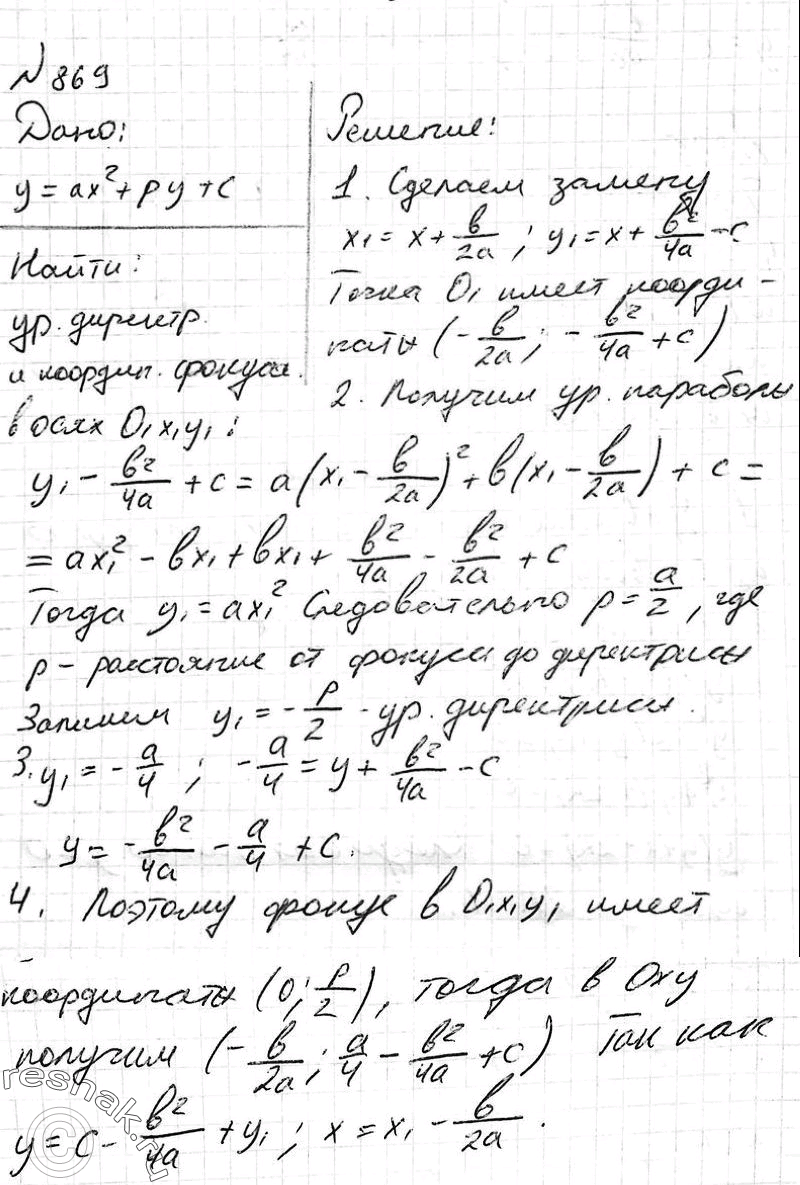 №869
Дано:
y = ax² + py + c
Найти:
ур. директр.
и координ. фокуса.
Решение:
1. Сделаем замену
x₁ = x + в/2a ; y₁ = x + в²/4a - c
Точка O₁ имеет коорди-
наты (-в/2a ; -в²/4a + c)
2. Получим ур. параболы
в осях O₁x₁y₁ :
y₁ - в²/4a + c = a(x₁ - в/2a)² + в(x₁ - в/2a) + c =
= ax₁² - вx₁ + вx₁ + в²/4a - в²/2a + c
Тогда y₁ = ax₁² Следовательно p = a/2, где
p - расстояние от фокуса до директрисы
Запишем y₁ = -p/2 - ур. директрисы.
3. y₁ = -a/4 ; -a/4 = y + в²/4a - c
y = -в²/4a - a/4 + c.
4. Поэтому фокус в O₁x₁y₁ имеет
координаты (0; p/2), тогда в Oxy
получим (-в/2a ; a/4 - в²/4a + c) Так как
y = c - в²/4a + y₁ ; x = x₁ - в/2a .
reshak.ru
©